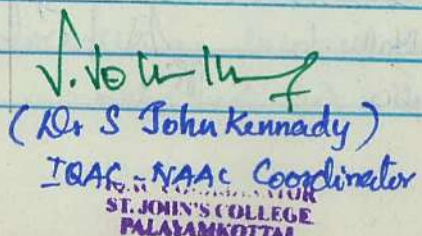 (Dr S John Kennady)
IQAC - NAAC Coordinator
ST. JOHN'S COLLEGE
PALAYAMKOTTAI